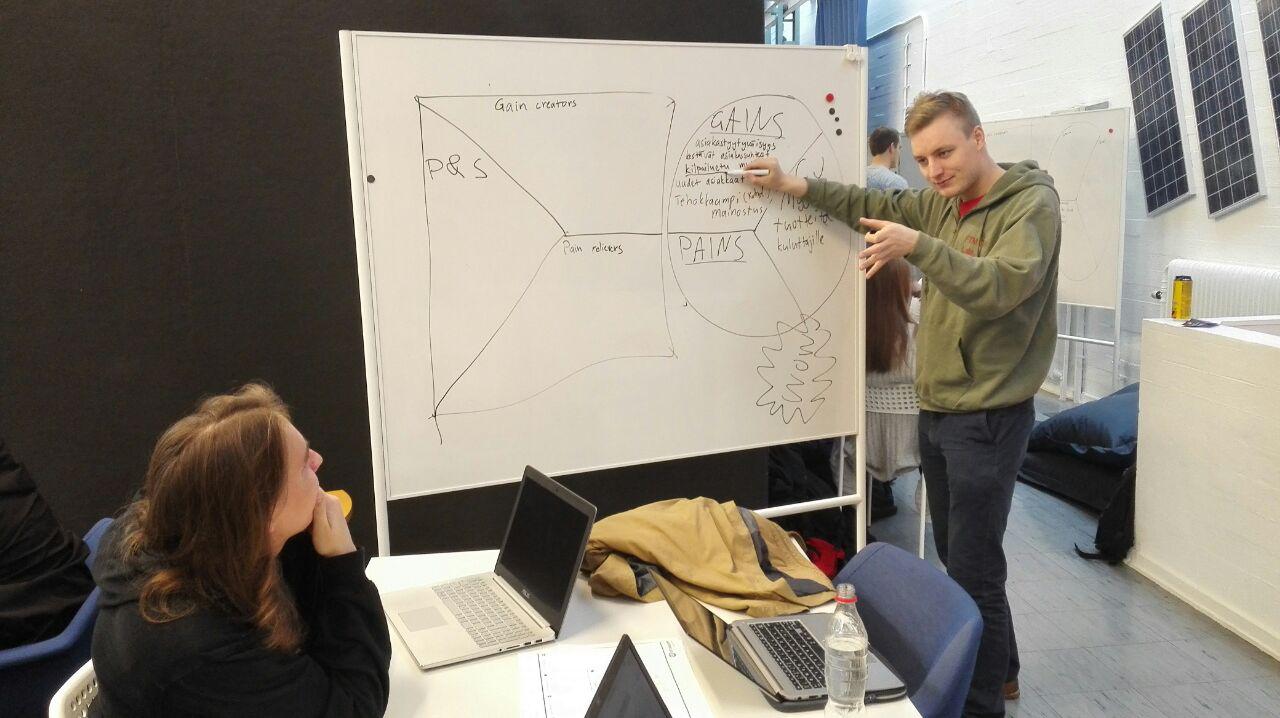 Gain creators
P&S
Pain relievers
GAINS
asiakastyytyväisyys
kestävät asiakassuhteet
kilpailuetu
uudet asiakkaat
Tehokkaampi
mainostus
tuotteita
kuluttajille
PAINS
WOW